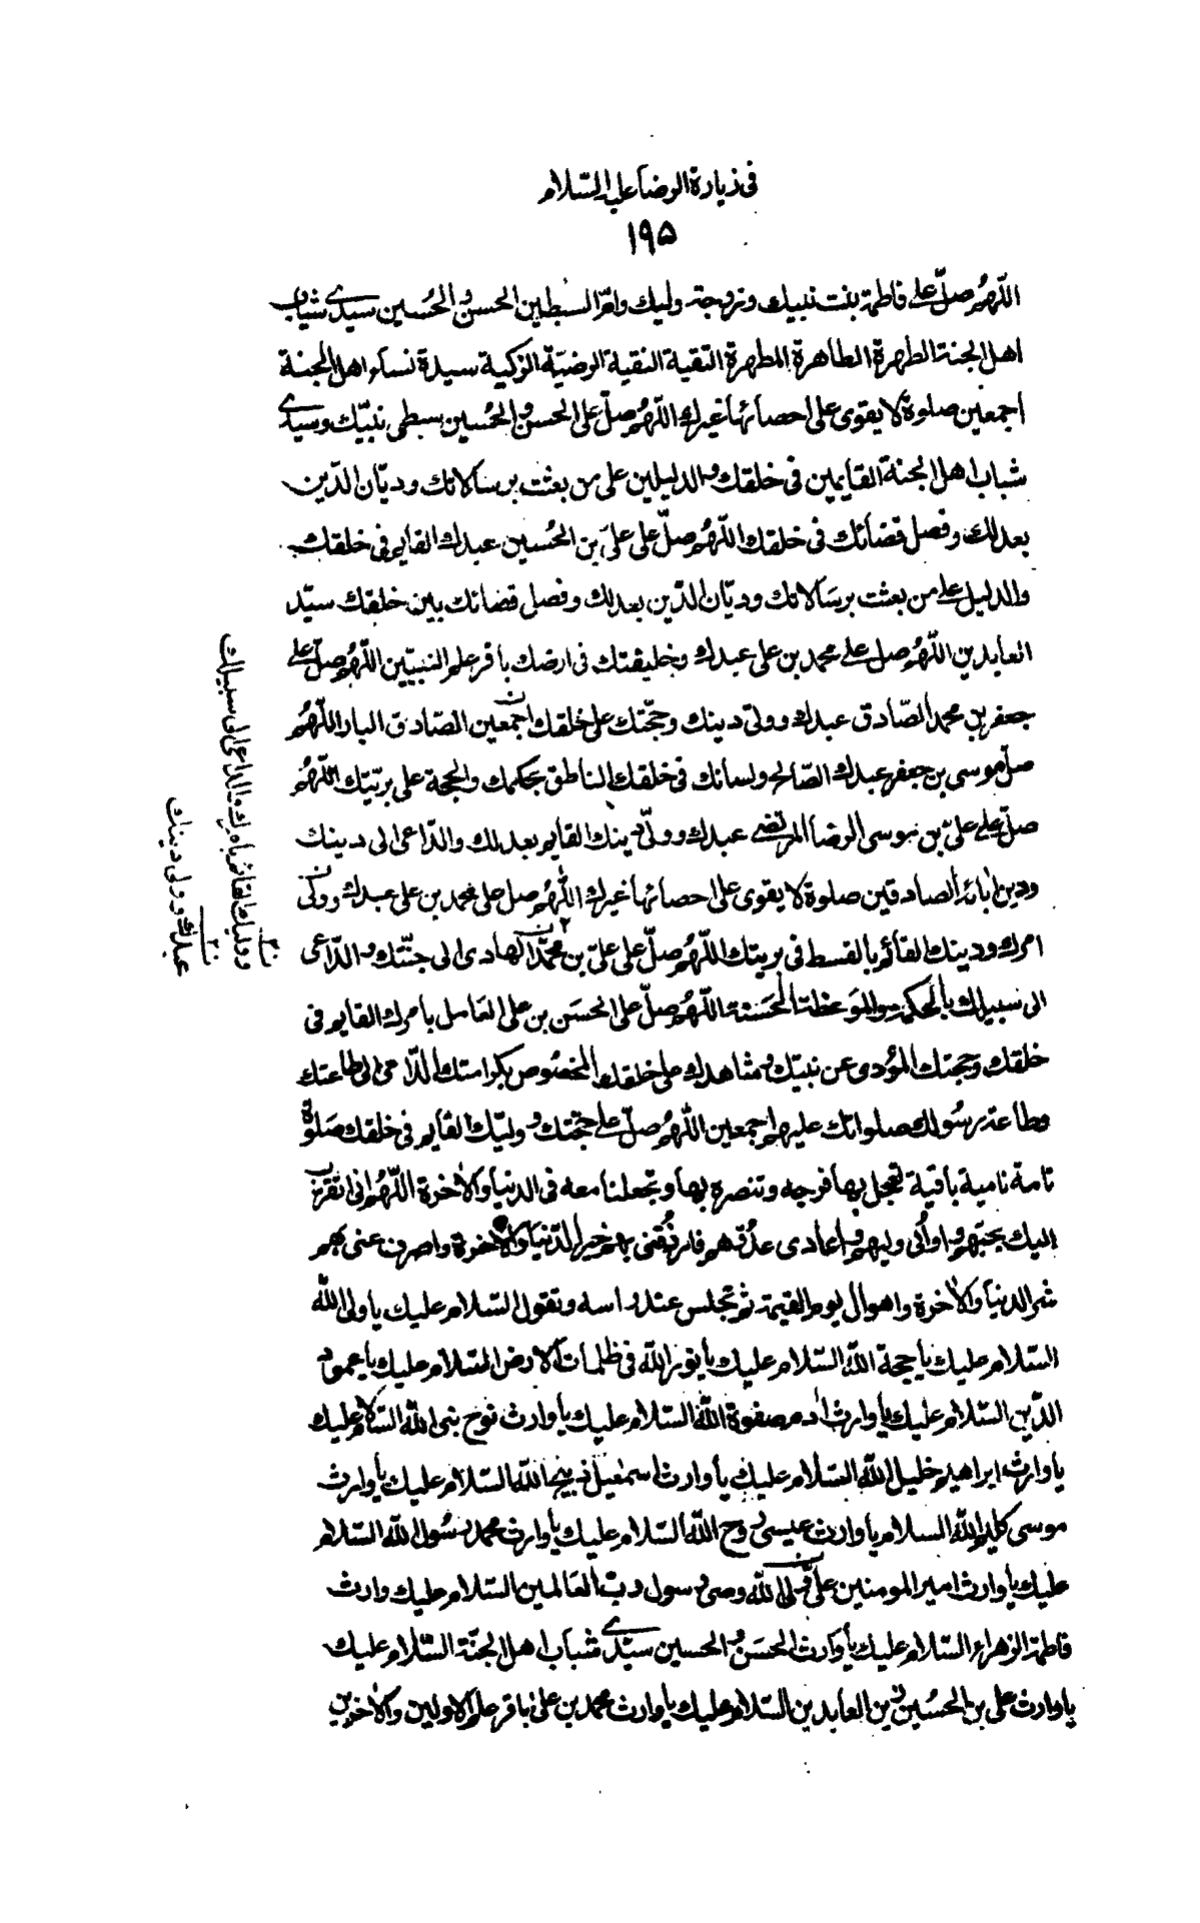 فى زيارة الرضا عليه السّلام
١٩۵
اللّهمّ صلّ على فاطمة بنت نبيك وزوجة وليك وامّ السبطين الحسن والحُسين سيدى شباب
اهل الجنة الطهرة الطاهرة المطهرة التقية النقية الرضيّة الزكية سيدة نساء اهل الجنة
اجمعين صلوة لا يقوى على احصائها غيرك اللّهمّ صلّ على الحسن والحُسين سبطى نبيّك وسيدى
شباب اهل الجنة القايمين فى خلقك والدليلين على من بعثت برسالاتك وديّان الدّين
بعدلك وفصل قضائك فى خلقك اللّهمّ صلّ على علىّ بن الحُسين عبدك القايم فى خلقك
والدليل على من بعثت برسَالاتك وديّان الدّين بعدلك وفصل قضائك بين خلقك سيّد
العابدين اللّهمّ صل على محمد بن على عبدك وخليفتك فى ارضك باقر علم النبيّين اللّهمّ صلّ على
جعفر بن محمد الصّادق عبدك وولىّ دينك وحجّتك على خلقك اجمعين الصّادق البار اللّهمّ
صلّ موسى بن جعفر عبدك الصّالح ولسانك فى خلقك الناطق بحكمك والحجة على بريّتك اللّهمّ
صلّ على علىّ بن موسى الرضا المرتضى عبدك وولىّ دينك القايم بعدلك والدّاعى الى دينك
ودين ابائه الصادقين صلوة لا يقوى على احصائها غيرك اللّهمّ صل على محمد بن على عبدك وولى
امرك ودينك القائم بالقسط فى بريتك اللّهمّ صلّ على علىّ بن محمّد الهادى الى جنّتك والدّاعى
الى سبيلك بالحكمة والموَعظة الحَسنة اللّهمّ صلّ على الحسَن بن على العَامل بامرك القايم فى
خلقك وحجتك المؤدى عن نبيّك وشاهدك على خلقك المخصُوص بكرامتك الدّاعى الى طاعتك
وطاعة رسُولك صلواتك عليهم اجمعين اللّهمّ صلّ على حجّتك وليّك القايم فى خلقك صَلوٰة
تامة نامية باقية تعجل بها فرجه وتنصره بها وتجعلنا معه فى الدنيا والاخرة اللّهمّ انى اتقرب
اليك بحبّهم واوالى وليهم واعادى عدُوّهم فارزُقنى بهم خير الدّنيا والاخرة واصرف عنى بهم
شر الدنيا والاخرة واهوال يوم القيمة ثم تجلس عند راسه وتقول السّلام عليك يا ولى اللّه
السّلام عليك يا حجة اللّه السّلام عليك يا نور اللّه فى ظلمات الارض السّلام عليك يا عمود
الدّين السّلام عليك يا وارث ادم صفوة اللّه السّلام عليك يا وارث نوح نبى اللّه السّلام عليك
يا وارث ابراهيم خليل اللّه السّلام عليك يا وارث اسمعيل ذبيح اللّه السّلام عليك يا وارث
موسى كليم اللّه السلام يا وارث عيسى روح اللّه السّلام عليك يا وارث محمد رسُول اللّه السّلام
عليك يا وارث امير المومنين علىّ ولى اللّه وصى رسول ربّ العَالمين السّلام عليك وارث
فاطمة الزهراء السّلام عليك يا وارث الحسَن والحسين سيّدى شباب اهل الجنّة السّلام عليك
يا وارث على بن الحسُين زين العابدين السّلام عليك يا وارث محمد بن على باقر علم الاولين والاخرين
ووليك القائم بامرك والداعى الى سبيلك
عبدك وولى دينك